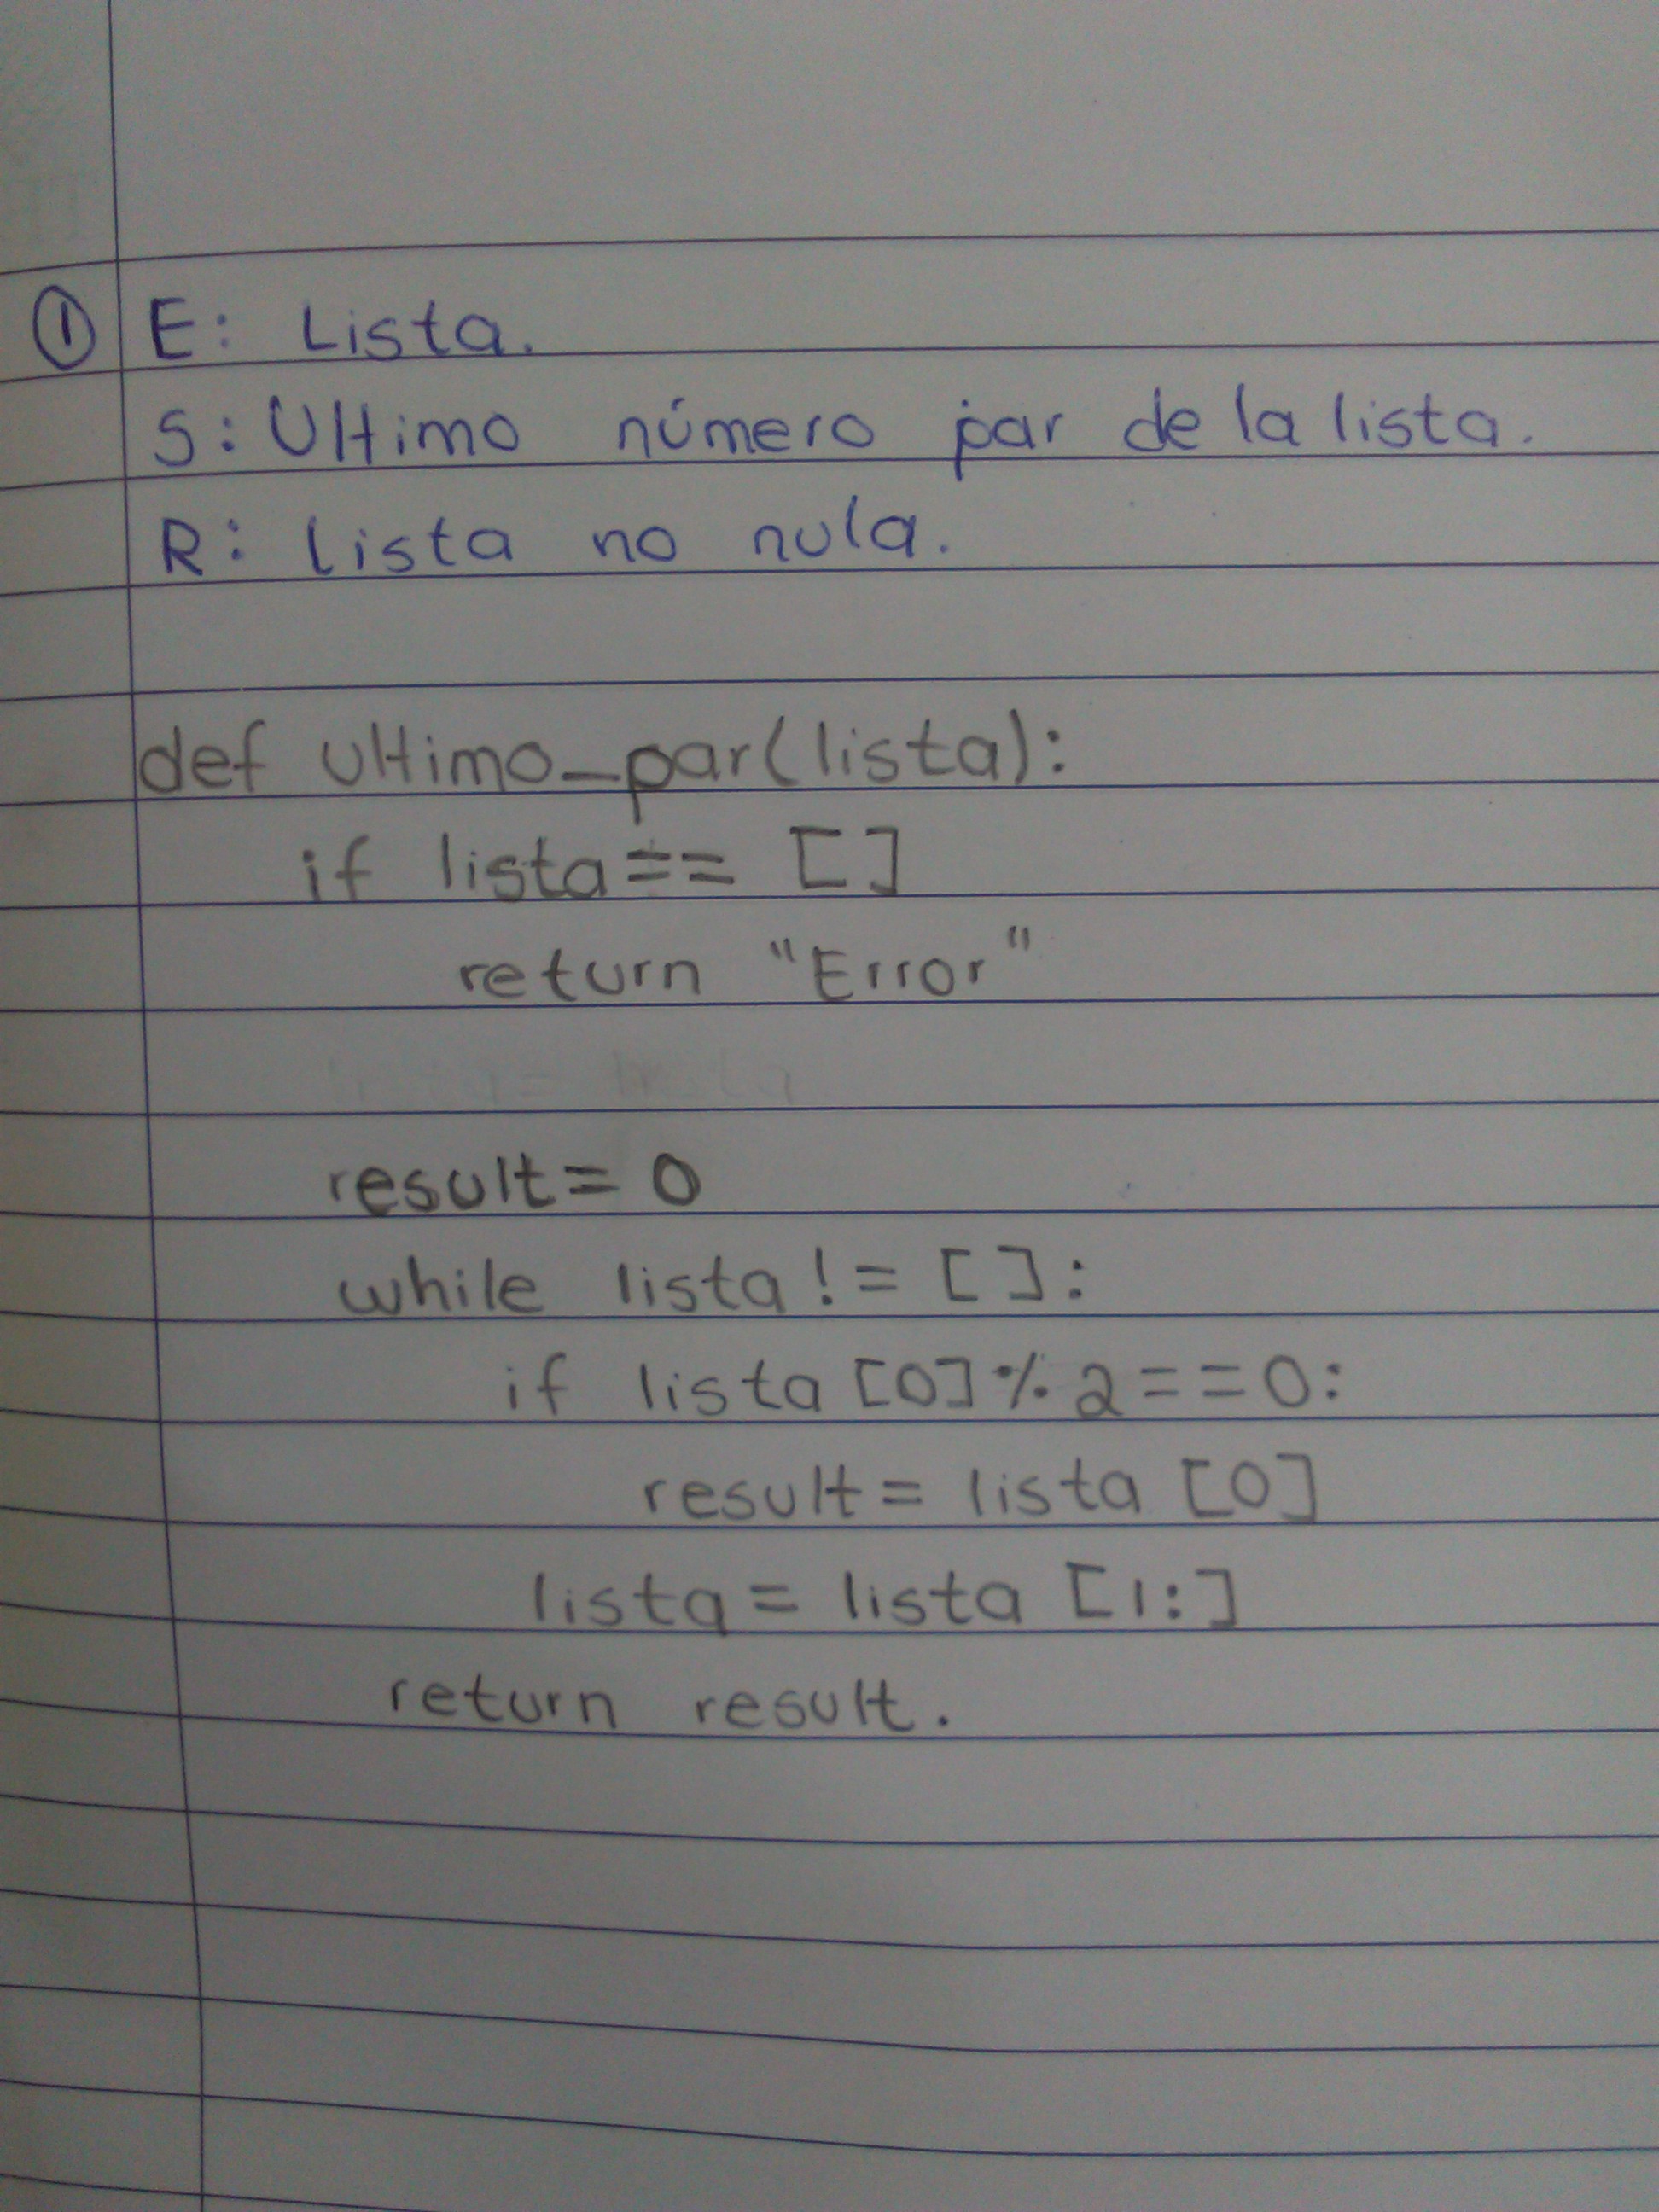 ① E: Lista.
S: Ultimo número par de la lista.
R: lista no nula.
def ultimo_par(lista):
if lista == []
return "Error"
result = 0
while lista != []:
if lista [0] % 2 == 0:
result = lista [0]
lista = lista [1:]
return result.